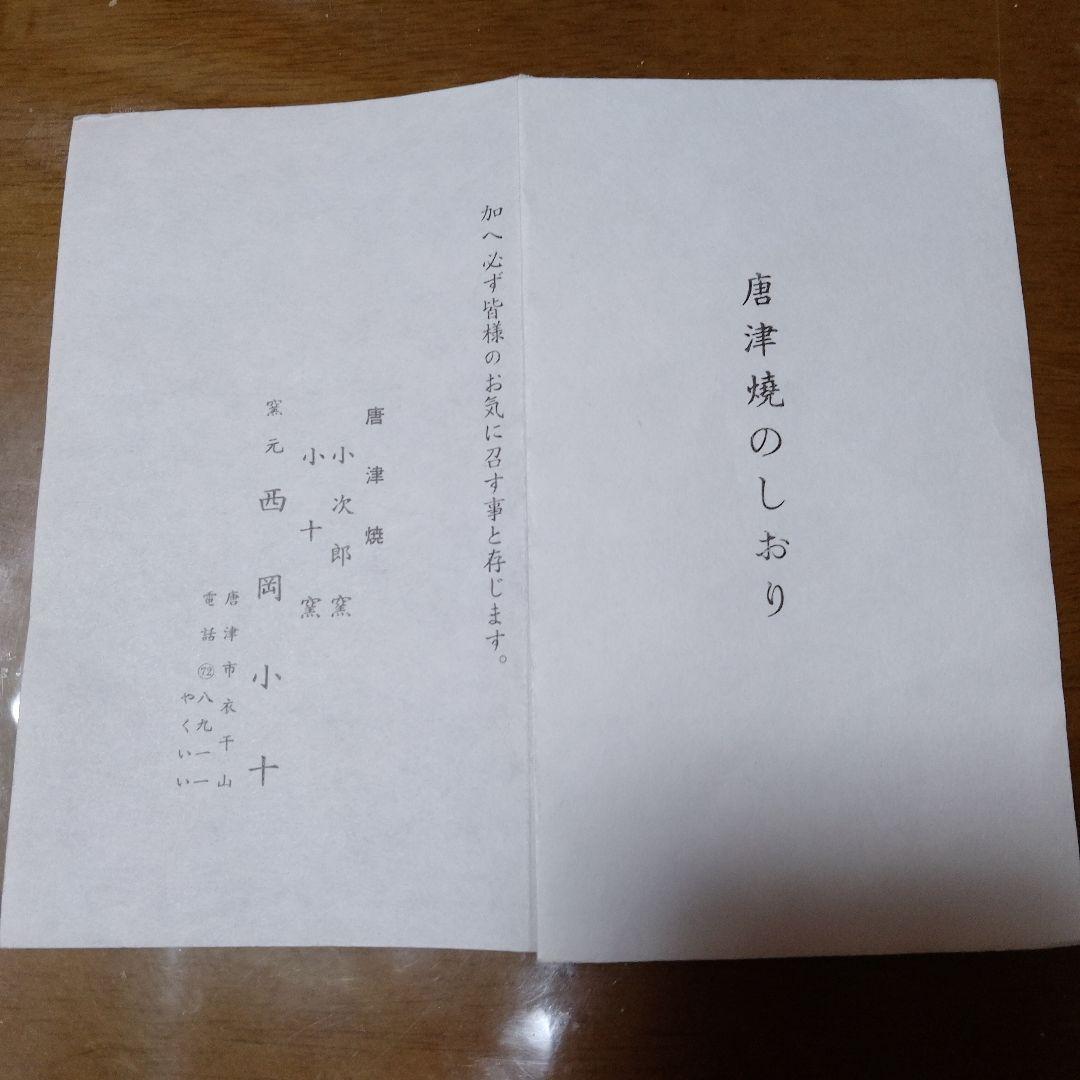 唐津燒のしおり
加へ必ず皆様のお気に召す事と存じます。
唐津燒
小次郎窯
小十窯
窯元 西岡小十
唐津市衣干山
電話72八九一一
やくいい